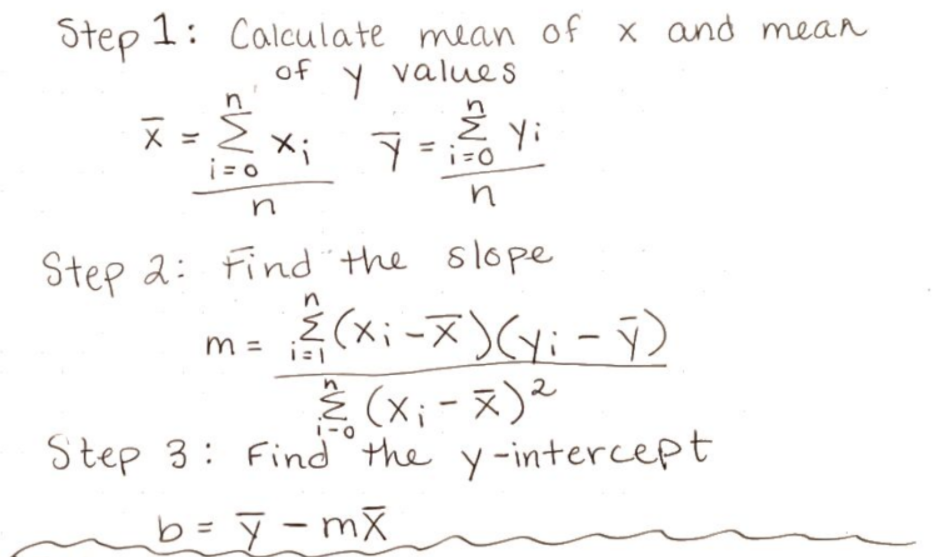 Step 1: Calculate mean of x and mean
of y values
x̄ = Σ_{i=0}^{n} x_i / n    ȳ = Σ_{i=0}^{n} y_i / n
Step 2: Find the slope
m = Σ_{i=1}^{n} (x_i - x̄)(y_i - ȳ) / Σ_{i=0}^{n} (x_i - x̄)²
Step 3: Find the y-intercept
b = ȳ - mx̄